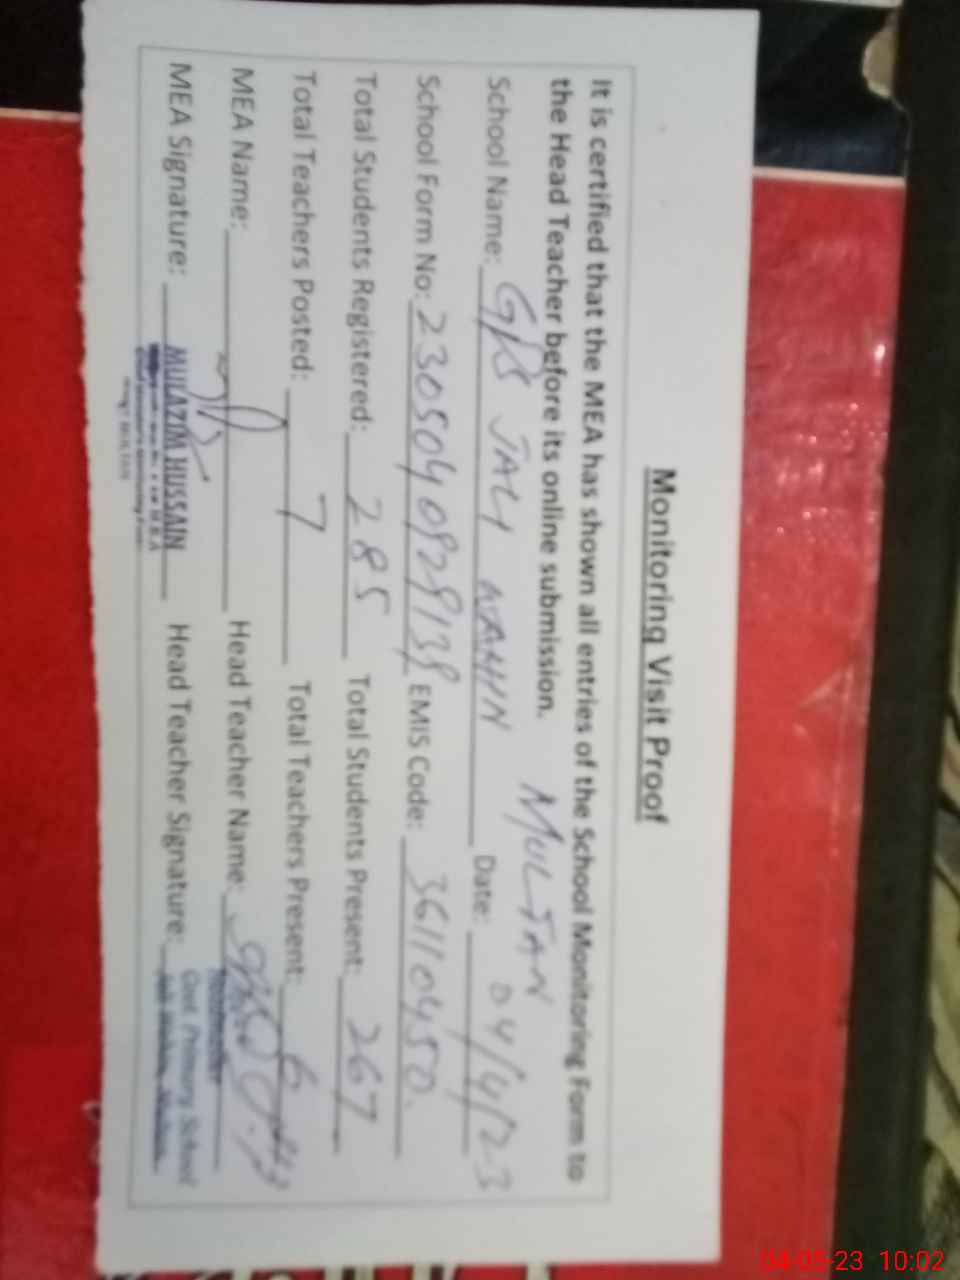 Monitoring Visit Proof
It is certified that the MEA has shown all entries of the School Monitoring Form to
the Head Teacher before its online submission. MULTAN
School Name: GPS JALI WAHIN Date: 04/4/23
School Form No: 2305040929139 EMIS Code: 36110450.
Total Students Registered: 285 Total Students Present: 267
Total Teachers Posted: 7 Total Teachers Present: 6
MEA Name: Head Teacher Name:
MEA Signature: MULAZIM HUSSAIN Head Teacher Signature:
Headmaster
Govt. Primary School
04-05-23 10:02